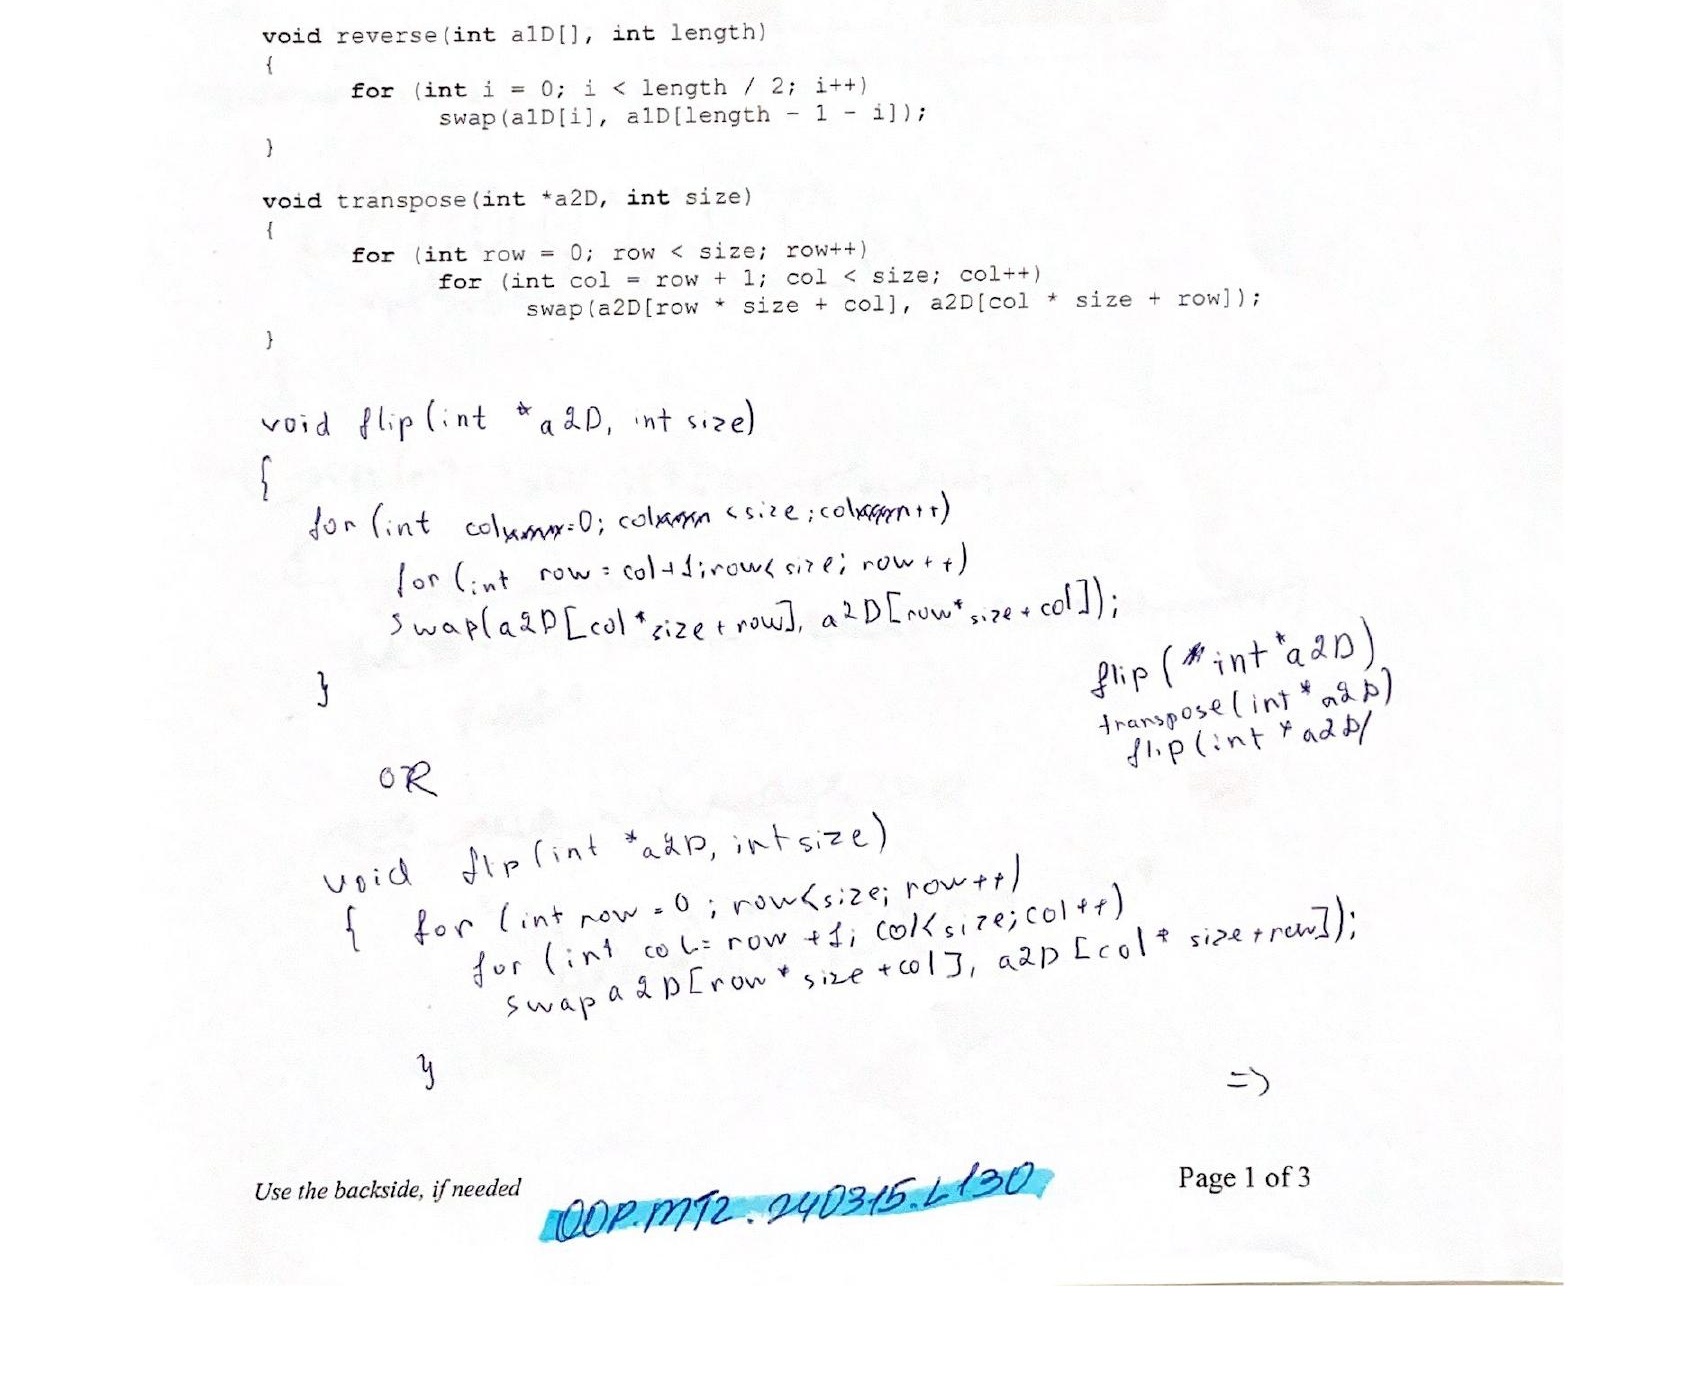 void reverse(int a1D[], int length)
{
for (int i = 0; i < length / 2; i++)
swap(a1D[i], a1D[length - 1 - i]);
}
void transpose(int *a2D, int size)
{
for (int row = 0; row < size; row++)
for (int col = row + 1; col < size; col++)
swap(a2D[row * size + col], a2D[col * size + row]);
}
void flip(int *a2D, int size)
{
for (int col=0; col <size; col++)
for (int row = col+1; row< size; row++)
swap(a2D[col*size+row], a2D[row*size+col]);
}
flip(int *a2D)
transpose(int *a2D)
flip(int *a2D)
OR
void flip(int *a2D, int size)
{ for (int row = 0; row<size; row++)
for (int col= row +1; col<size; col++)
swap a2D[row * size +col], a2D[col* size+row]);
}
=>
Use the backside, if needed
OOP.MT2.240315.L130
Page 1 of 3